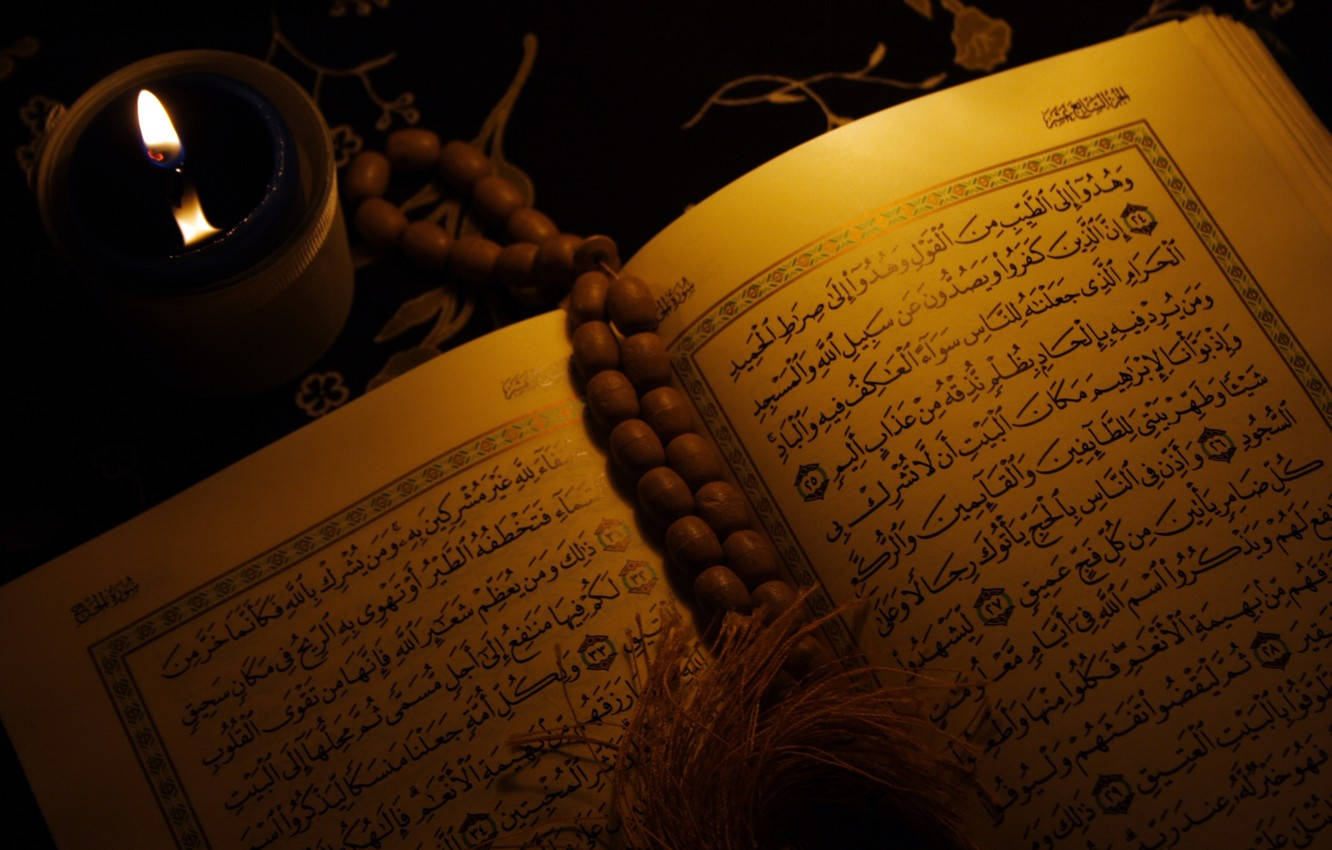 الجزء السابع عشر
وَهُدُوٓا۟ إِلَى ٱلطَّيِّبِ مِنَ ٱلْقَوْلِ وَهُدُوٓا۟ إِلَىٰ صِرَٰطِ ٱلْحَمِيدِ
٢٤ إِنَّ ٱلَّذِينَ كَفَرُوا۟ وَيَصُدُّونَ عَن سَبِيلِ ٱللَّهِ وَٱلْمَسْجِدِ
ٱلْحَرَامِ ٱلَّذِى جَعَلْنَٰهُ لِلنَّاسِ سَوَآءً ٱلْعَٰكِفُ فِيهِ وَٱلْبَادِ
وَمَن يُرِدْ فِيهِ بِإِلْحَادٍۭ بِظُلْمٍ نُّذِقْهُ مِنْ عَذَابٍ أَلِيمٍ ٢٥
وَإِذْ بَوَّأْنَا لِإِبْرَٰهِيمَ مَكَانَ ٱلْبَيْتِ أَن لَّا تُشْرِكْ بِى
شَيْـًٔا وَطَهِّرْ بَيْتِىَ لِلطَّآئِفِينَ وَٱلْقَآئِمِينَ وَٱلرُّكَّعِ
ٱلسُّجُودِ ٢٦ وَأَذِّن فِى ٱلنَّاسِ بِٱلْحَجِّ يَأْتُوكَ رِجَالًا وَعَلَىٰ
كُلِّ ضَامِرٍ يَأْتِينَ مِن كُلِّ فَجٍّ عَمِيقٍ ٢٧ لِّيَشْهَدُوا۟
لَهُمْ وَيَذْكُرُوا۟ ٱسْمَ ٱللَّهِ فِىٓ أَيَّامٍ مَّعْلُومَٰتٍ
مِّنۢ بَهِيمَةِ ٱلْأَنْعَٰمِ فَكُلُوا۟ مِنْهَا
٢٨ ثُمَّ لْيَقْضُوا۟ تَفَثَهُمْ وَلْيُوفُوا۟
بِٱلْبَيْتِ ٱلْعَتِيقِ ٢٩ ذَٰلِكَ
فَهُوَ خَيْرٌ لَّهُۥ عِندَ
سورة الحج
لِلَّهِ غَيْرَ مُشْرِكِينَ بِهِۦ وَمَن يُشْرِكْ بِٱللَّهِ فَكَأَنَّمَا خَرَّ مِنَ
فَتَخْطَفُهُ ٱلطَّيْرُ أَوْ تَهْوِى بِهِ ٱلرِّيحُ فِى مَكَانٍ سَحِيقٍ
٣١ ذَٰلِكَ وَمَن يُعَظِّمْ شَعَٰٓئِرَ ٱللَّهِ فَإِنَّهَا مِن تَقْوَى ٱلْقُلُوبِ
٣٢ لَكُمْ فِيهَا مَنَٰفِعُ إِلَىٰٓ أَجَلٍ مُّسَمًّى ثُمَّ مَحِلُّهَآ إِلَى ٱلْبَيْتِ
٣٣ وَلِكُلِّ أُمَّةٍ جَعَلْنَا مَنسَكًا لِّيَذْكُرُوا۟ ٱسْمَ
بَهِيمَةِ ٱلْأَنْعَٰمِ فَإِلَٰهُكُمْ
ٱلْمُخْبِتِينَ ٣٤